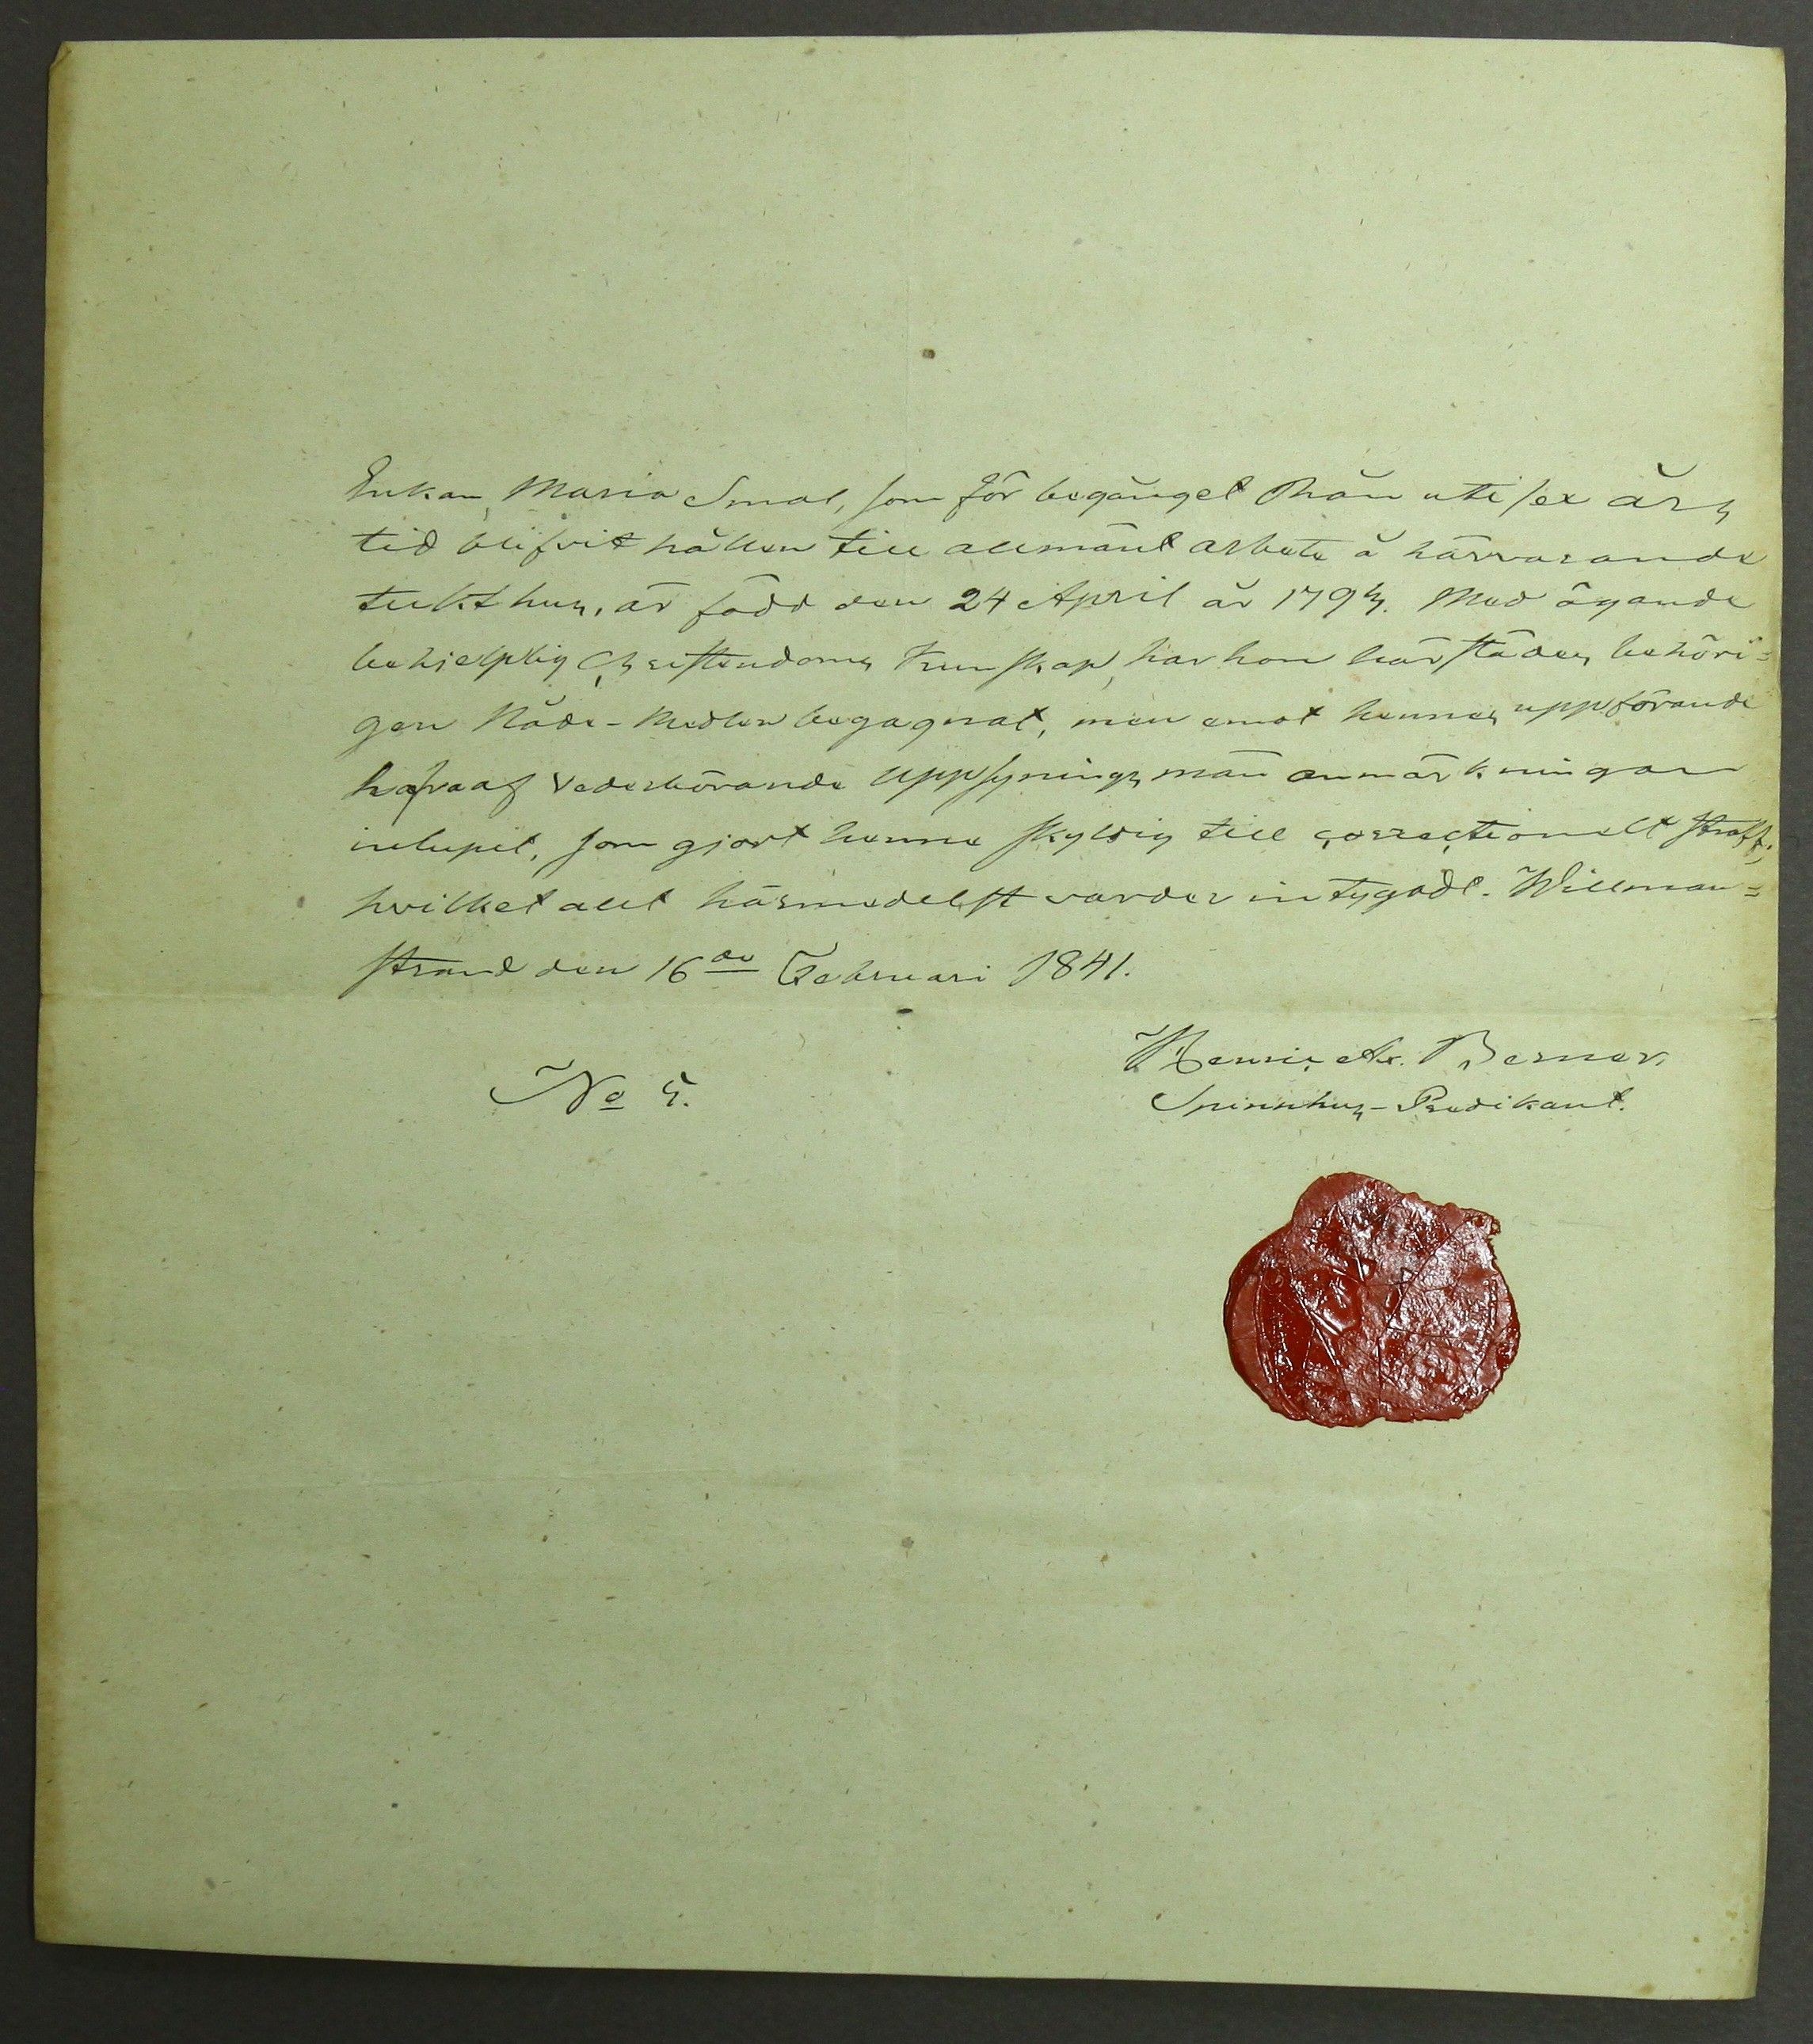 Enkan Maria Smal, som för begånget Rån uti sex års
tid blifvit hållen till allmänt arbete å härvarande
tukthus, är född den 24 April år 1795. Med ägande
behjelplig Christendoms kunskap, har hon härstädes behöri=
gen Nåde-Medlen begagnat, men emot hennes uppförande
hafva af Vederbörande Uppsyningsmän anmärkningar
inlupit, som gjort henne skyldig till correctionelt straff;
hvilket allt härmedelst varder intygadt. Willman=
strand den 16de Februari 1841.
Henric Berner.
No 5.
Spinnhus-Predikant.